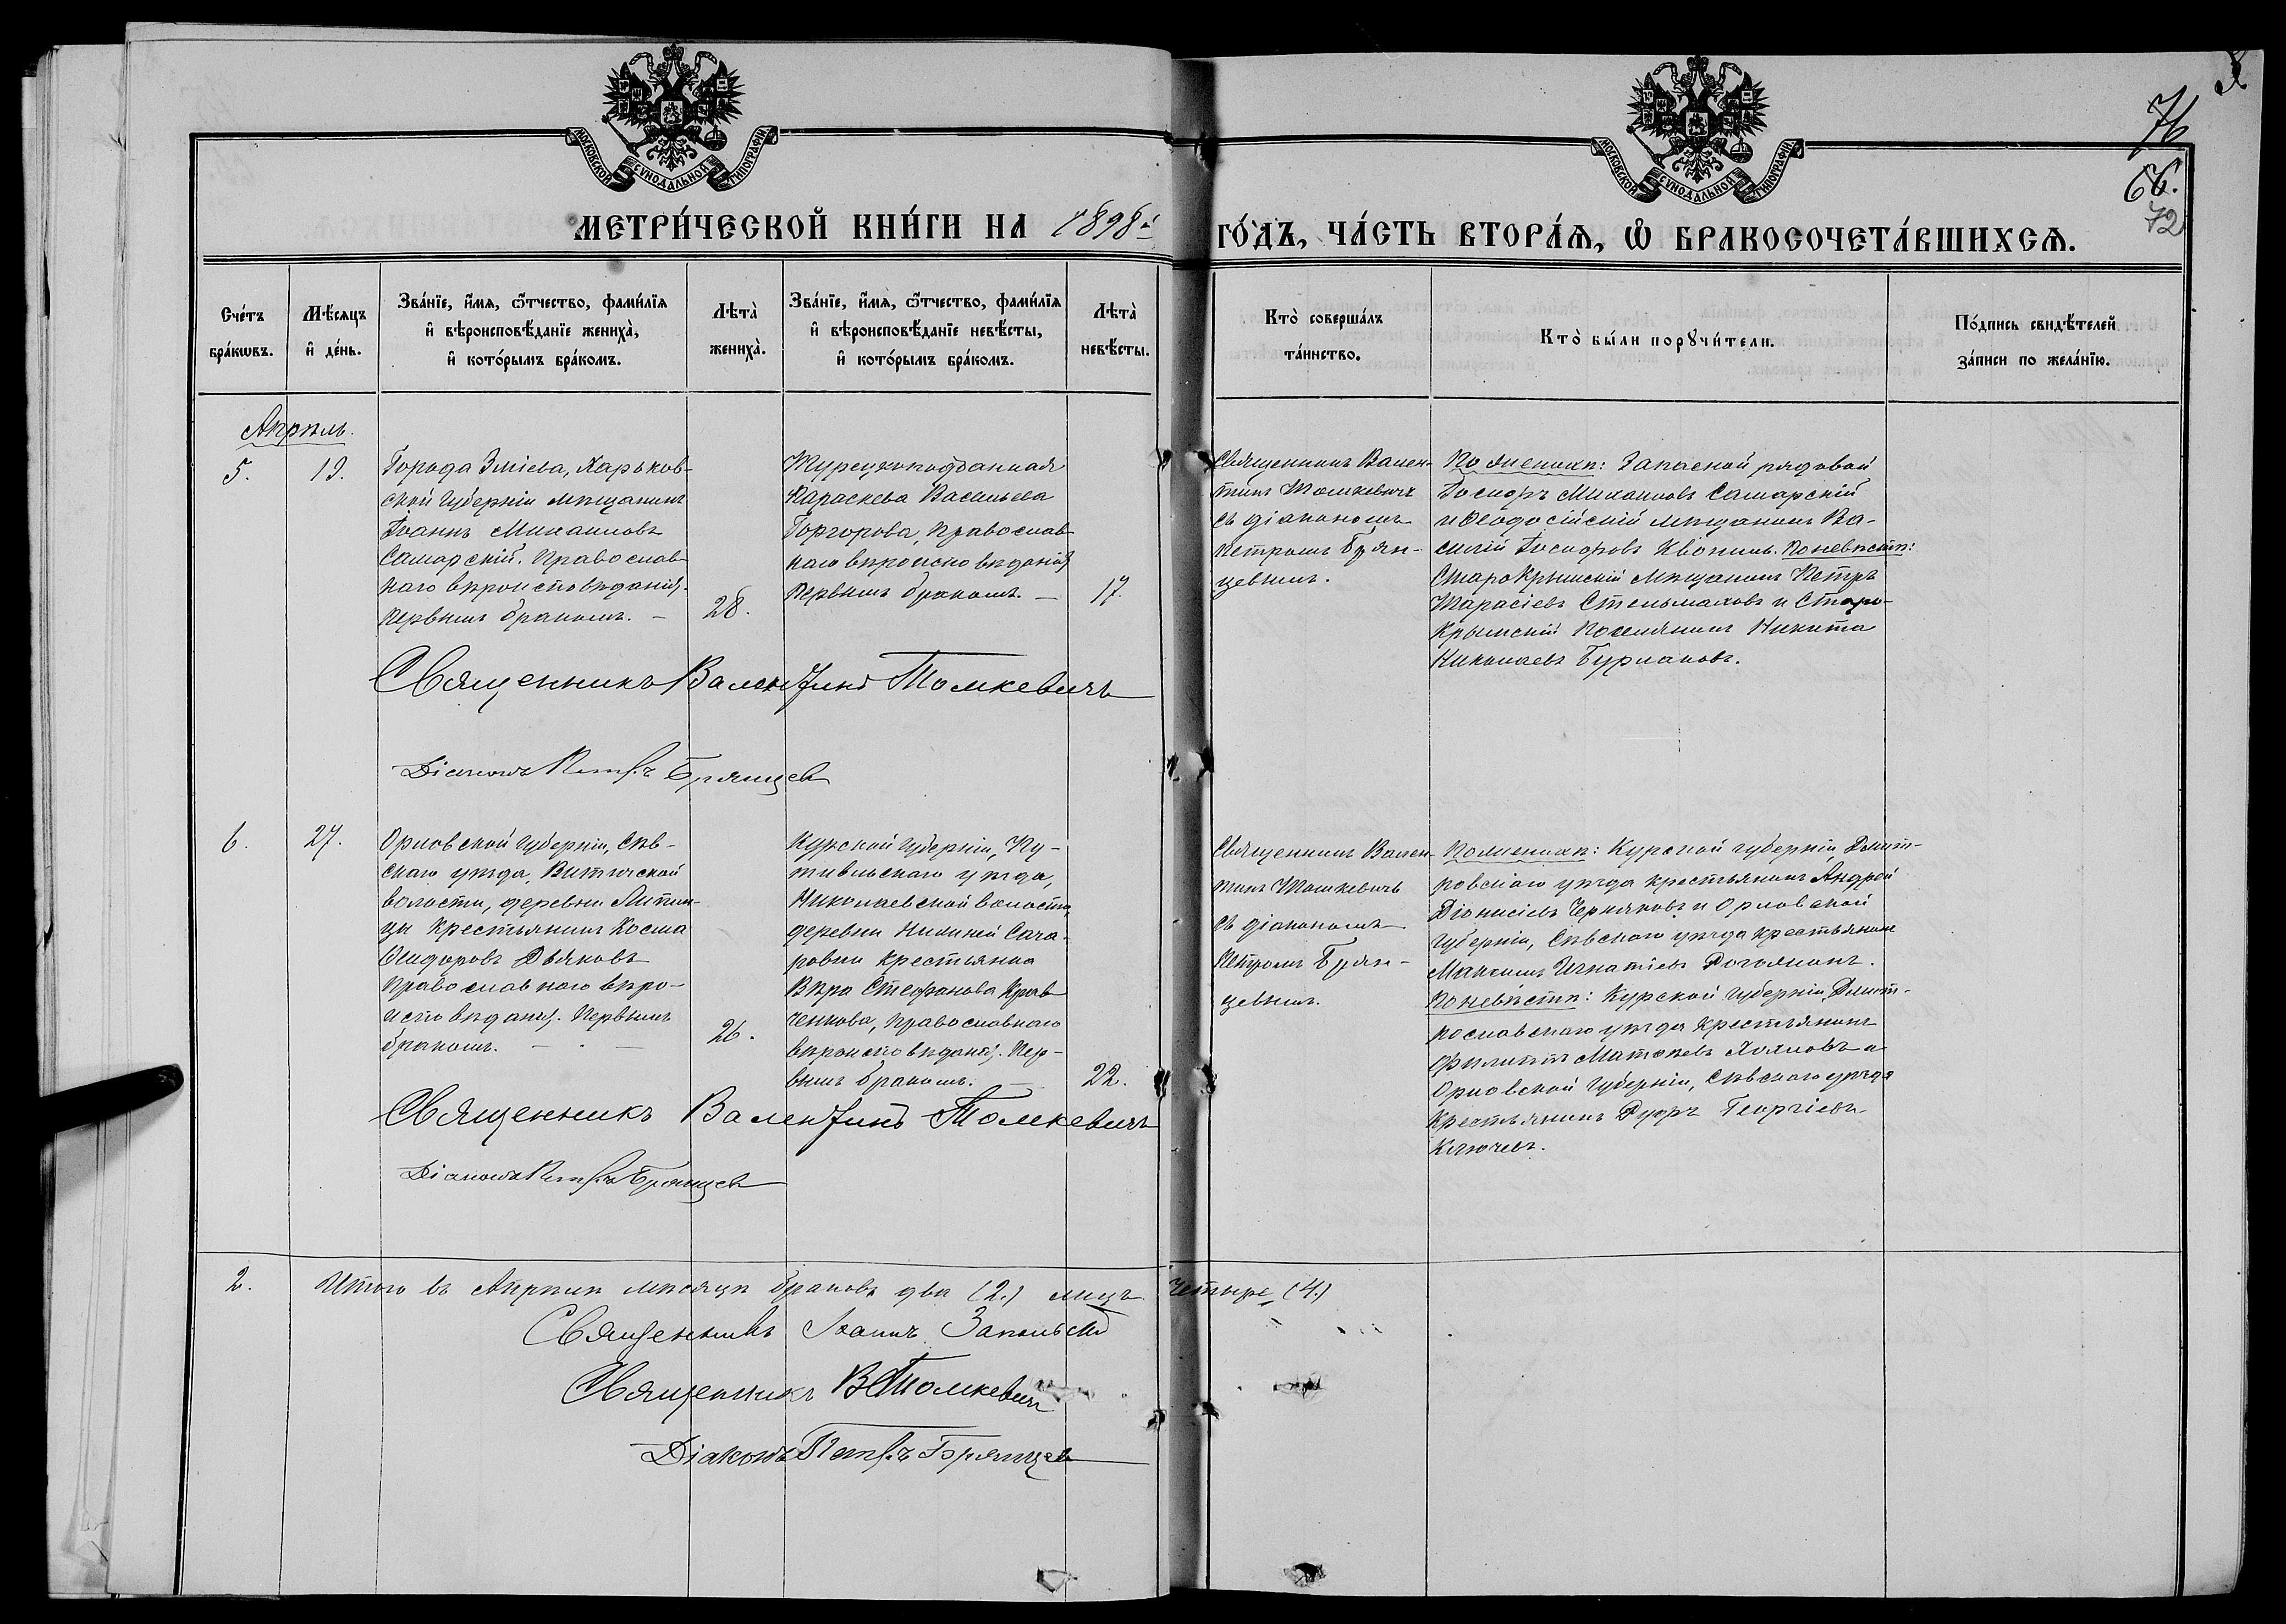 МОСКОВСКОЙ СѴНОДАЛЬНОЙ ТИПОГРАФІИ
МОСКОВСКОЙ СѴНОДАЛЬНОЙ ТИПОГРАФІИ
76
66.
72
МЕТРИ́ЧЕСКОЙ КНИ́ГИ НА 1898й
ГО́ДЪ, ЧА́СТЬ ВТОРА́Ѧ, Ѡ҆ БРАКОСОЧЕТА́ВШИХСѦ.
Сче́тъ
бра́кѡвъ.
Мѣ́сѧцъ
и҆ де́нь.
Зва́нїе, и҆́мѧ, ѻ҆́тчество, фамѝлїѧ
и҆ вѣроисповѣ́данїе жениха̀,
и҆ кото́рымъ бра́комъ.
Лѣта̀
жениха̀.
Зва́нїе, и҆́мѧ, ѻ҆́тчество, фамѝлїѧ
и҆ вѣроисповѣ́данїе невѣ́сты,
и҆ кото́рымъ бра́комъ.
Лѣта̀
невѣ́сты.
Кто̀ соверша́лъ
та́инство.
Кто̀ бы́ли порꙋчи́тели.
По́дпись свидѣ́телей
за́писи по жела́нїю.
Апрѣль.
5.
19.
Города Зміева, Харьков-
ской губерніи мѣщанинъ
Іоаннъ Михаиловъ
Самарскій. Православ-
наго вѣроисповѣданія.
Первымъ бракомъ. —
28.
Турецкоподданная
Параскева Васильева
православ-
наго вѣроисповѣданія
Первымъ бракомъ. —
17.
Священникъ Вален-
тинъ Томкевичъ
съ діакономъ
Петромъ Брян-
цевымъ.
По женихѣ: Запасной рядовой
Михаиловъ Самарскій
и Ѳеодосійскій мѣщанинъ Ва-
силій По невѣстѣ:
СтароКрымскій мѣщанинъ Петръ
Тарасіевъ Стельмаховъ и Старо-
Крымскій поселянинъ Никита
Николаевъ
Священникъ Валентинъ Томкевичъ
Діаконъ Петръ Брянцевъ
6.
27.
Орловской губерніи, Сѣв-
скаго уѣзда,
волости, деревни
крестьянинъ Косма
Дьяковъ
православнаго вѣро-
исповѣданія. Первымъ
бракомъ. — . —
26.
Курской губерніи, Пу-
тивльскаго уѣзда,
Николаевской волости,
деревни Нижней
крестьянка
Вѣра Стефанова Крав-
ченкова, православнаго
вѣроисповѣданія. Пер-
вымъ бракомъ. —
22.
Священникъ Вален-
тинъ Томкевичъ
съ діакономъ
Петромъ Брян-
цевымъ.
По женихѣ: Курской губерніи, Дмит-
ровскаго уѣзда крестьянинъ Андрей
Діонисіевъ Черняковъ и Орловской
губерніи, Сѣвскаго уѣзда крестьянинъ
Максимъ Игнатіевъ
По невѣстѣ: Курской губерніи, Дмит-
рославскаго уѣзда крестьянинъ
Филиппъ и
Орловской губерніи, Сѣвскаго уѣзда
крестьянинъ Георгіевъ
Ключевъ.
Священникъ Валентинъ Томкевичъ
Діаконъ Петръ Брянцевъ
2.
Итого въ Апрѣлѣ мѣсяцѣ браковъ два (2.) лицъ четыре (4.)
Священникъ Іоаннъ
Священникъ В Томкевичъ
Діаконъ Петръ Брянцевъ